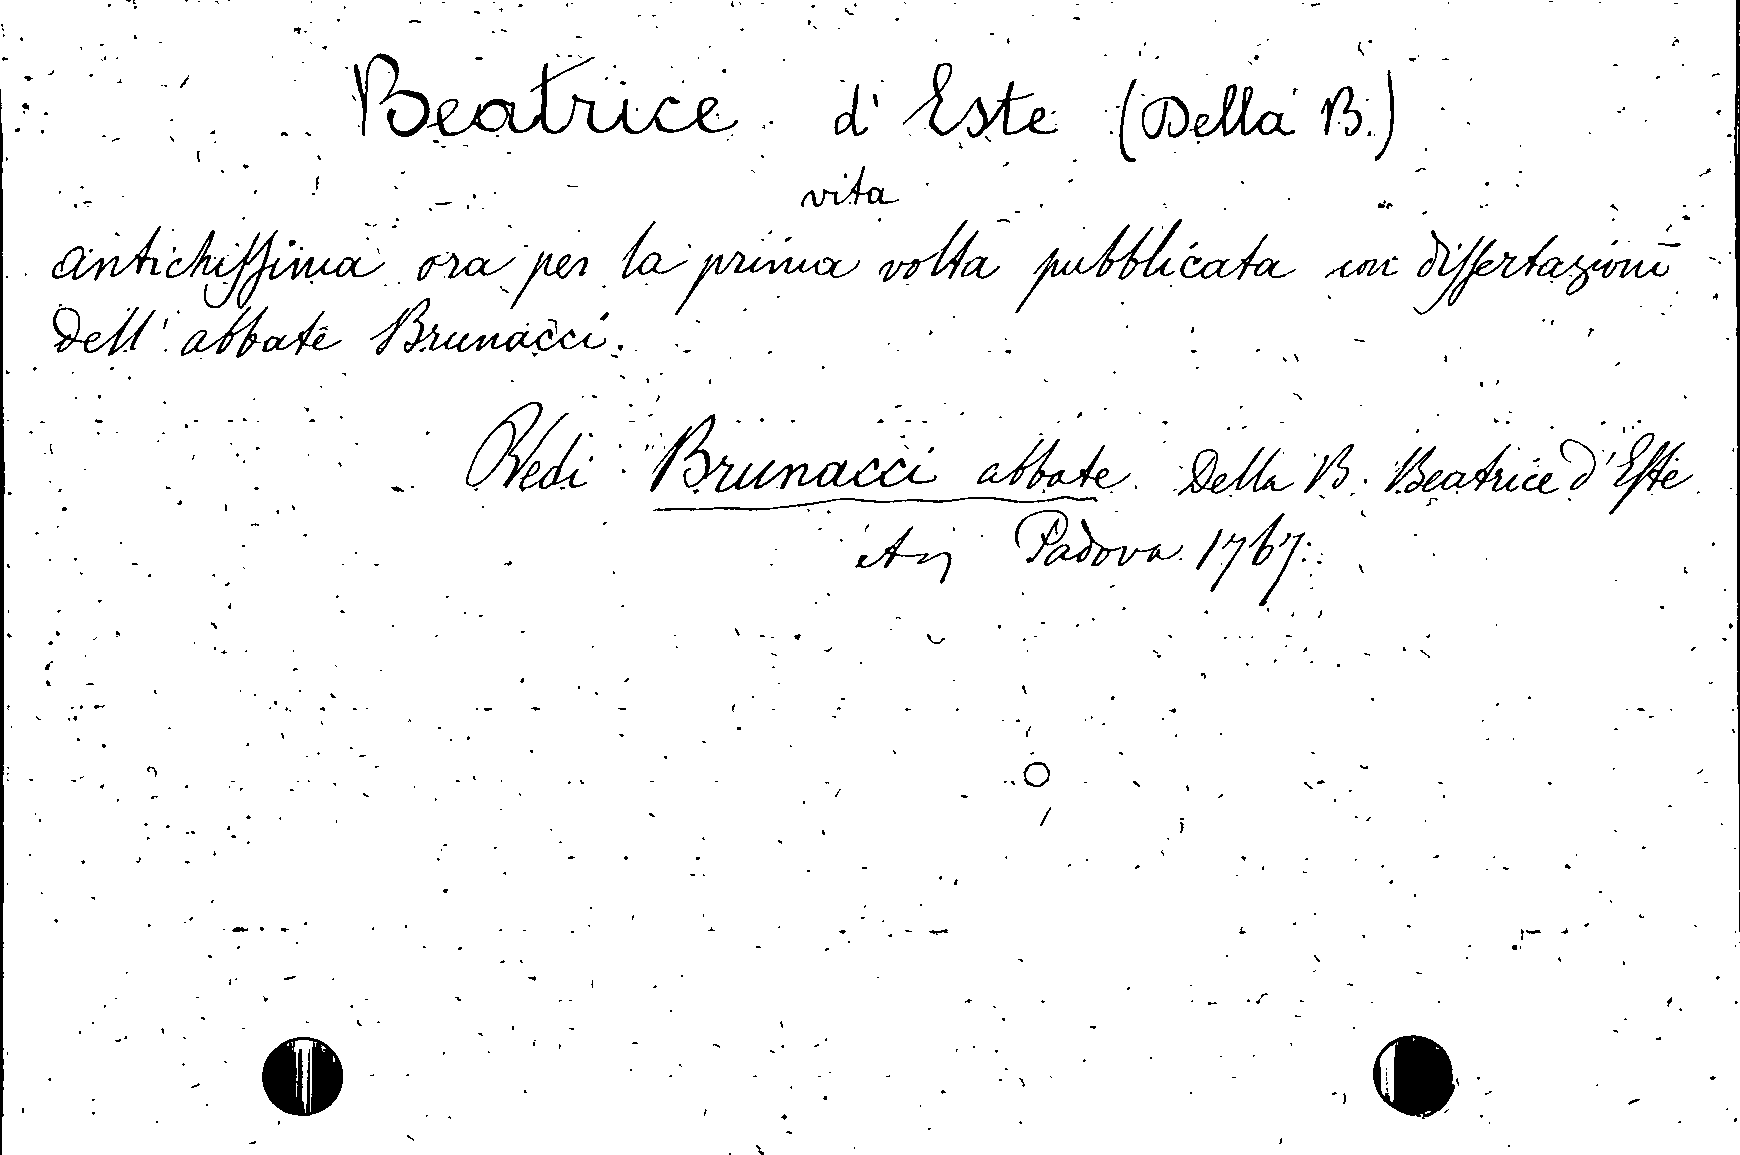 Beatrice d'Este (Della B.)
vita
antichissima ora per la prima volta pubblicata con dissertazioni
dell'abbate Brunacci.
Vedi Brunacci abbate Della B. Beatrice d'Este
Padova 1767.